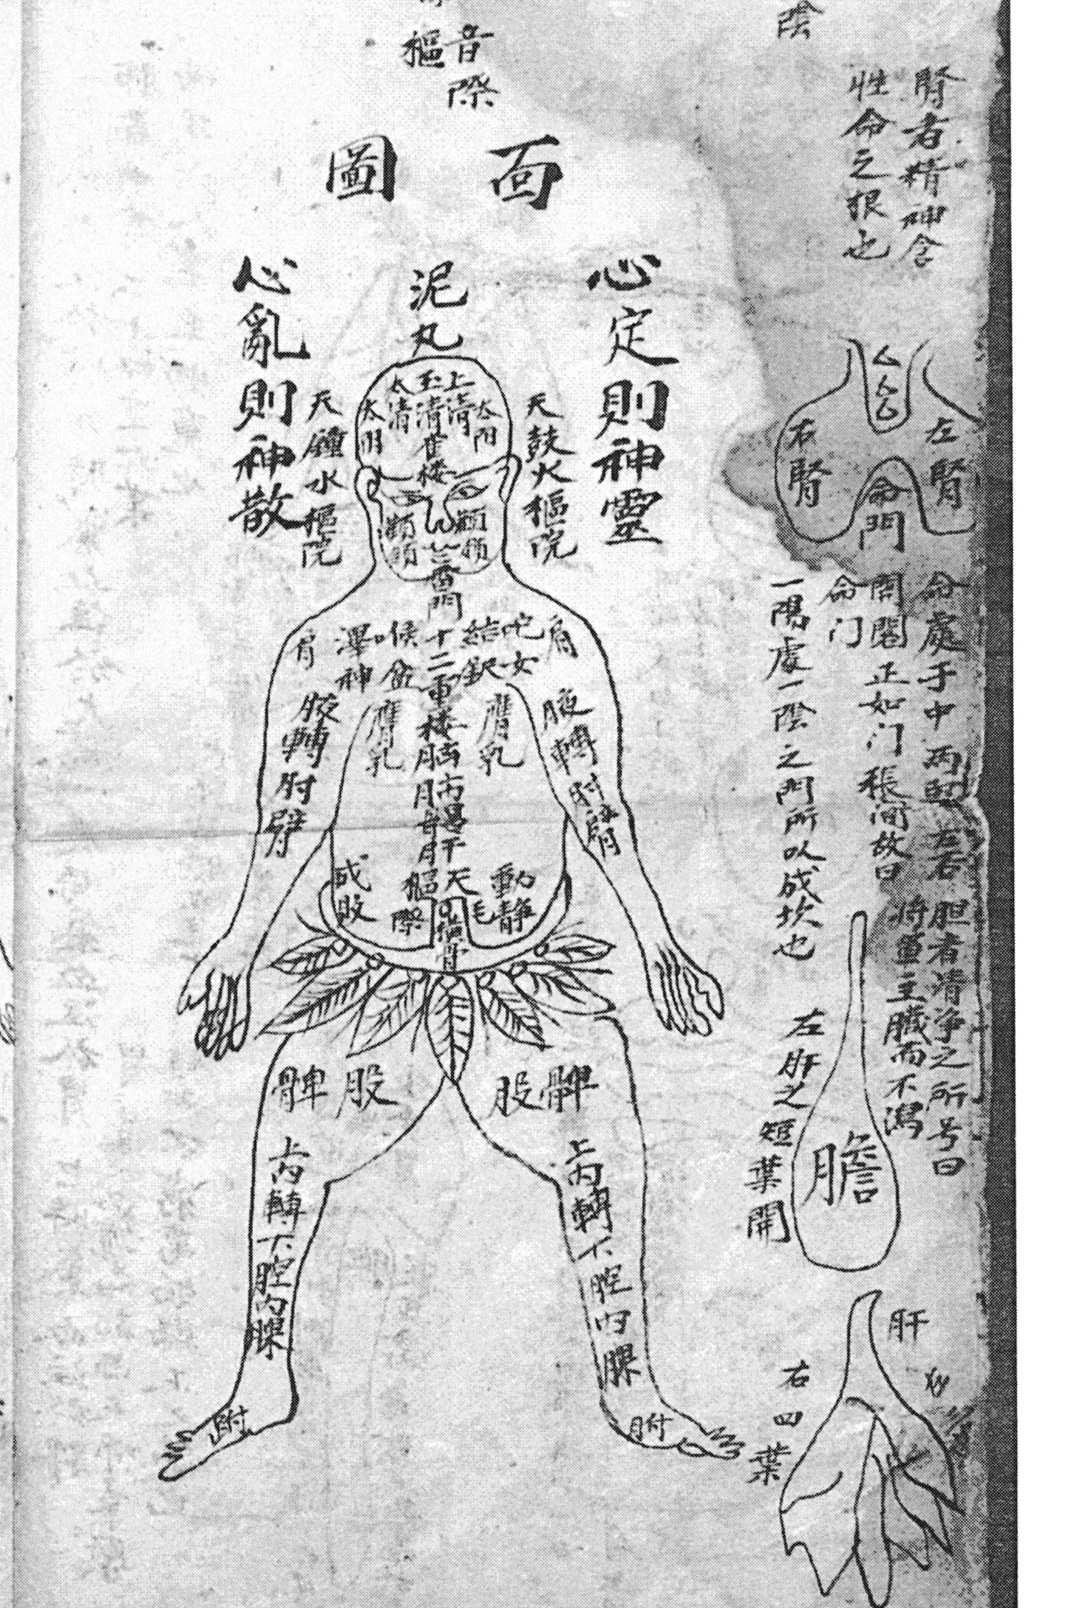 陰
腎者精神舍
性命之根也
右腎
左腎
命門
命處于中兩腎左右
開闔正如门張间故曰
命门
一陽處一陰之門所以成坎也
胆者清净之所号曰
將軍主臟而不瀉
膽
左肝之短葉開
肝
右四葉
音際
樞
面圖
心定則神靈
泥丸
心亂則神散
天鼓火樞院
天鐘水樞院
上清
玉清
太清
太阳
太阳
雀楼
顴
顴
雷門
十二重楼
肩
肩
喉
神
女
膺乳
膺乳
腋轉肘臂
腋轉肘臂
動静
成敗
天
樞
際
毛
骨
股髀
髀股
上内轉下腔内踝
上内轉下腔内踝
跗
跗